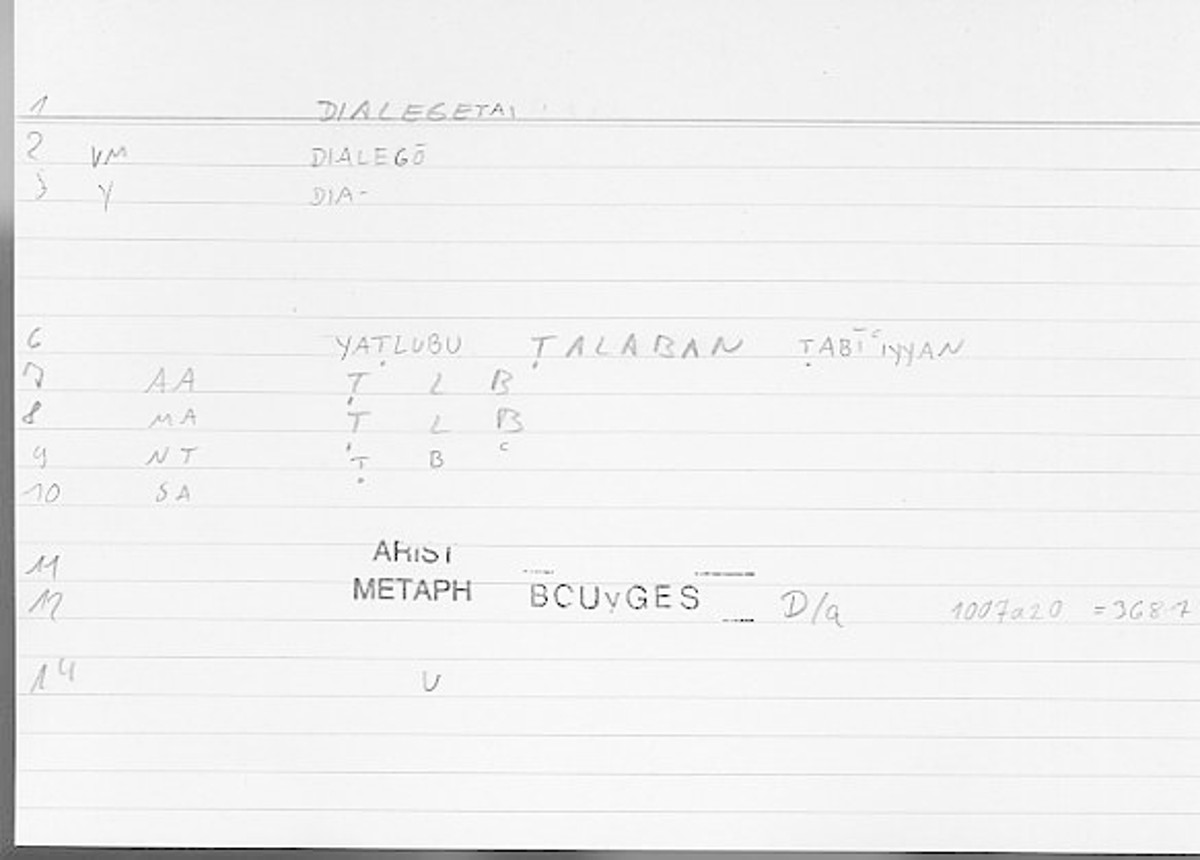 1 DIALEGETAI
2 VM DIALEGŌ
3 Y DIA-
6 YAṬLUBU ṬALABAN ṬABĪʿIYYAN
7 AA Ṭ L B
8 MA Ṭ L B
9 NT Ṭ B ʿ
10 SA
11 ARIST
12 METAPH BCUVGES D/a 1007a20 =368.7
14 U